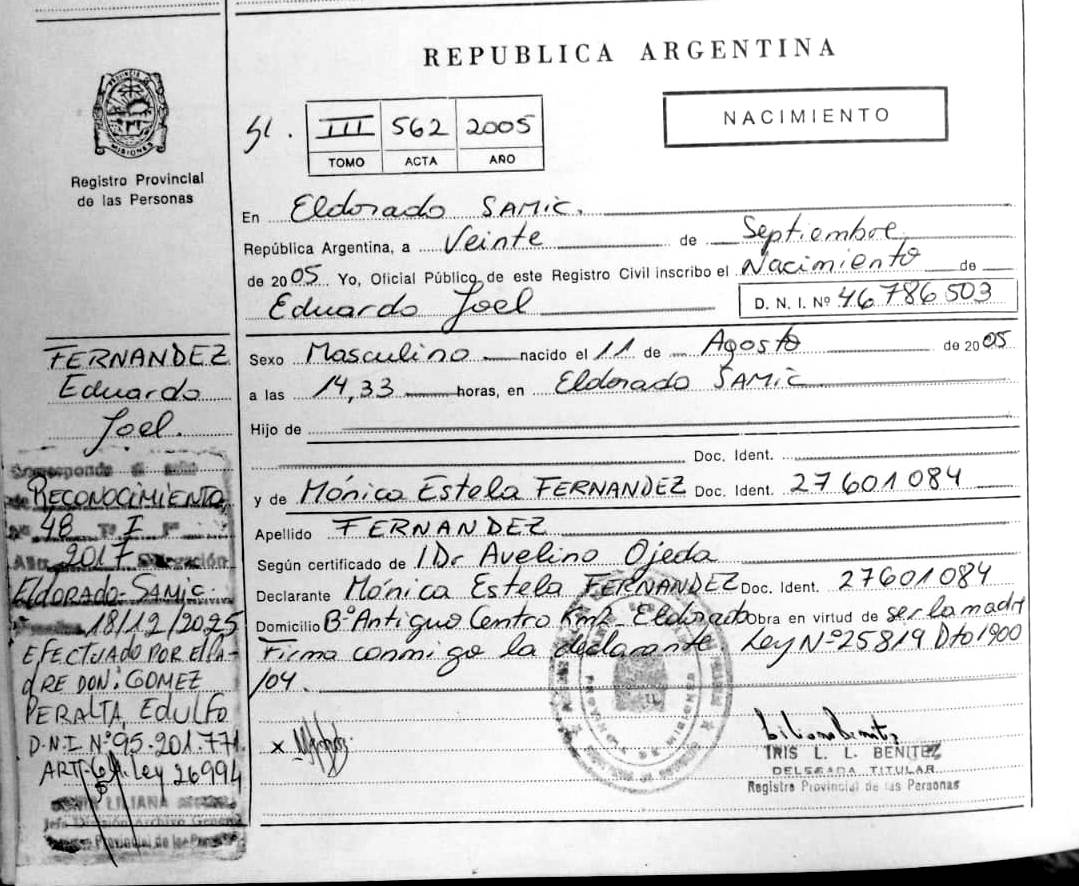 PROVINCIA DE
MISIONES
Registro Provincial
de las Personas
REPUBLICA ARGENTINA
III 562 2005
TOMO ACTA AÑO
NACIMIENTO
En Eldorado SAMIC.
República Argentina, a Veinte de Septiembre
de 2005 Yo, Oficial Público de este Registro Civil inscribo el Nacimiento de
Eduardo Joel D. N. I. Nº 46.786.503
Sexo Masculino nacido el 11 de Agosto de 2005
a las 14,33 horas, en Eldorado SAMIC
Hijo de
Doc. Ident.
y de Mónica Estela FERNANDEZ Doc. Ident. 27601084
Apellido FERNANDEZ
Según certificado de Dr Avelino Ojeda
Declarante Mónica Estela FERNANDEZ Doc. Ident. 27601084
Domicilio Bº Antiguo Centro Eldorado Obra en virtud de ser la madre
Firma conmigo la declarante Ley Nº 25819 Dto 1900
/04.
FERNANDEZ
Eduardo
Joel.
Corresponde
RECONOCIMIENTO
48 I
2017
ELDORADO-SAMIC.
18/12/2025
EFECTUADO POR EL PA-
DRE DON: GOMEZ
PERALTA, EDULFO
D.N.I. Nº 95.201.771.
Ley 26994
LILIANA
Provincial de las
x
IRIS L. L. BENITEZ
DELEGADA TITULAR
Registro Provincial de las Personas